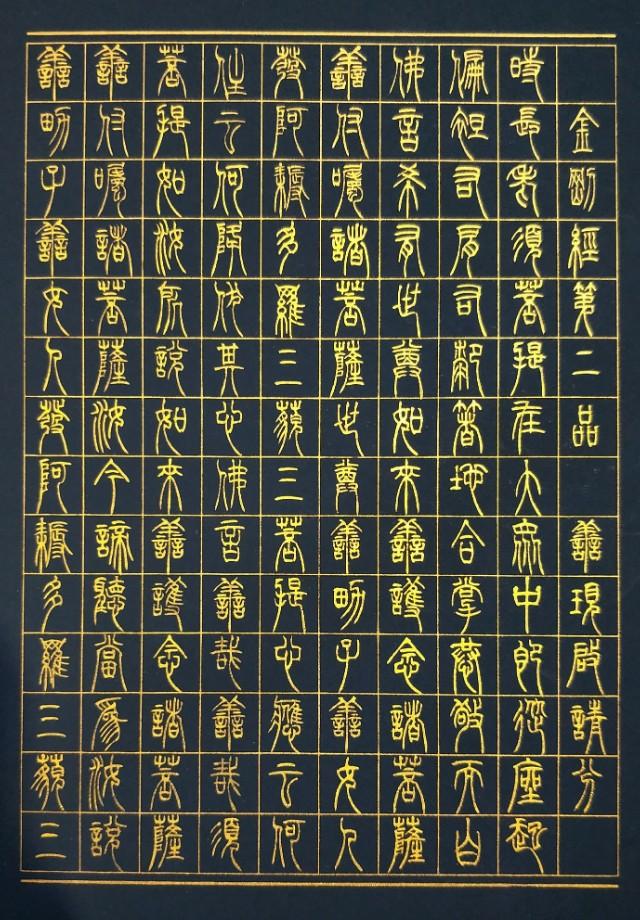 金剛經第二品 善現啟請分
時長老須菩提在大眾中即從座起
偏袒右肩右膝著地合掌恭敬而白
佛言希有世尊如來善護念諸菩薩
善付囑諸菩薩世尊善男子善女人
發阿耨多羅三藐三菩提心應云何
住云何降伏其心佛言善哉善哉須
菩提如汝所說如來善護念諸菩薩
善付囑諸菩薩汝今諦聽當為汝說
善男子善女人發阿耨多羅三藐三